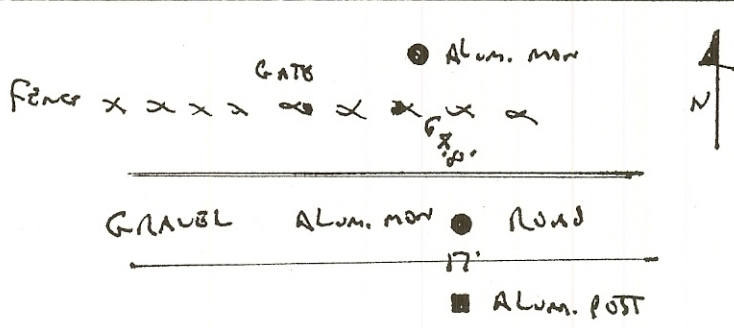 ALUM. MON
GATE
FENCE x x x x x x x x x
N
GRAVEL ALUM. MON ROAD
17'
ALUM. POST